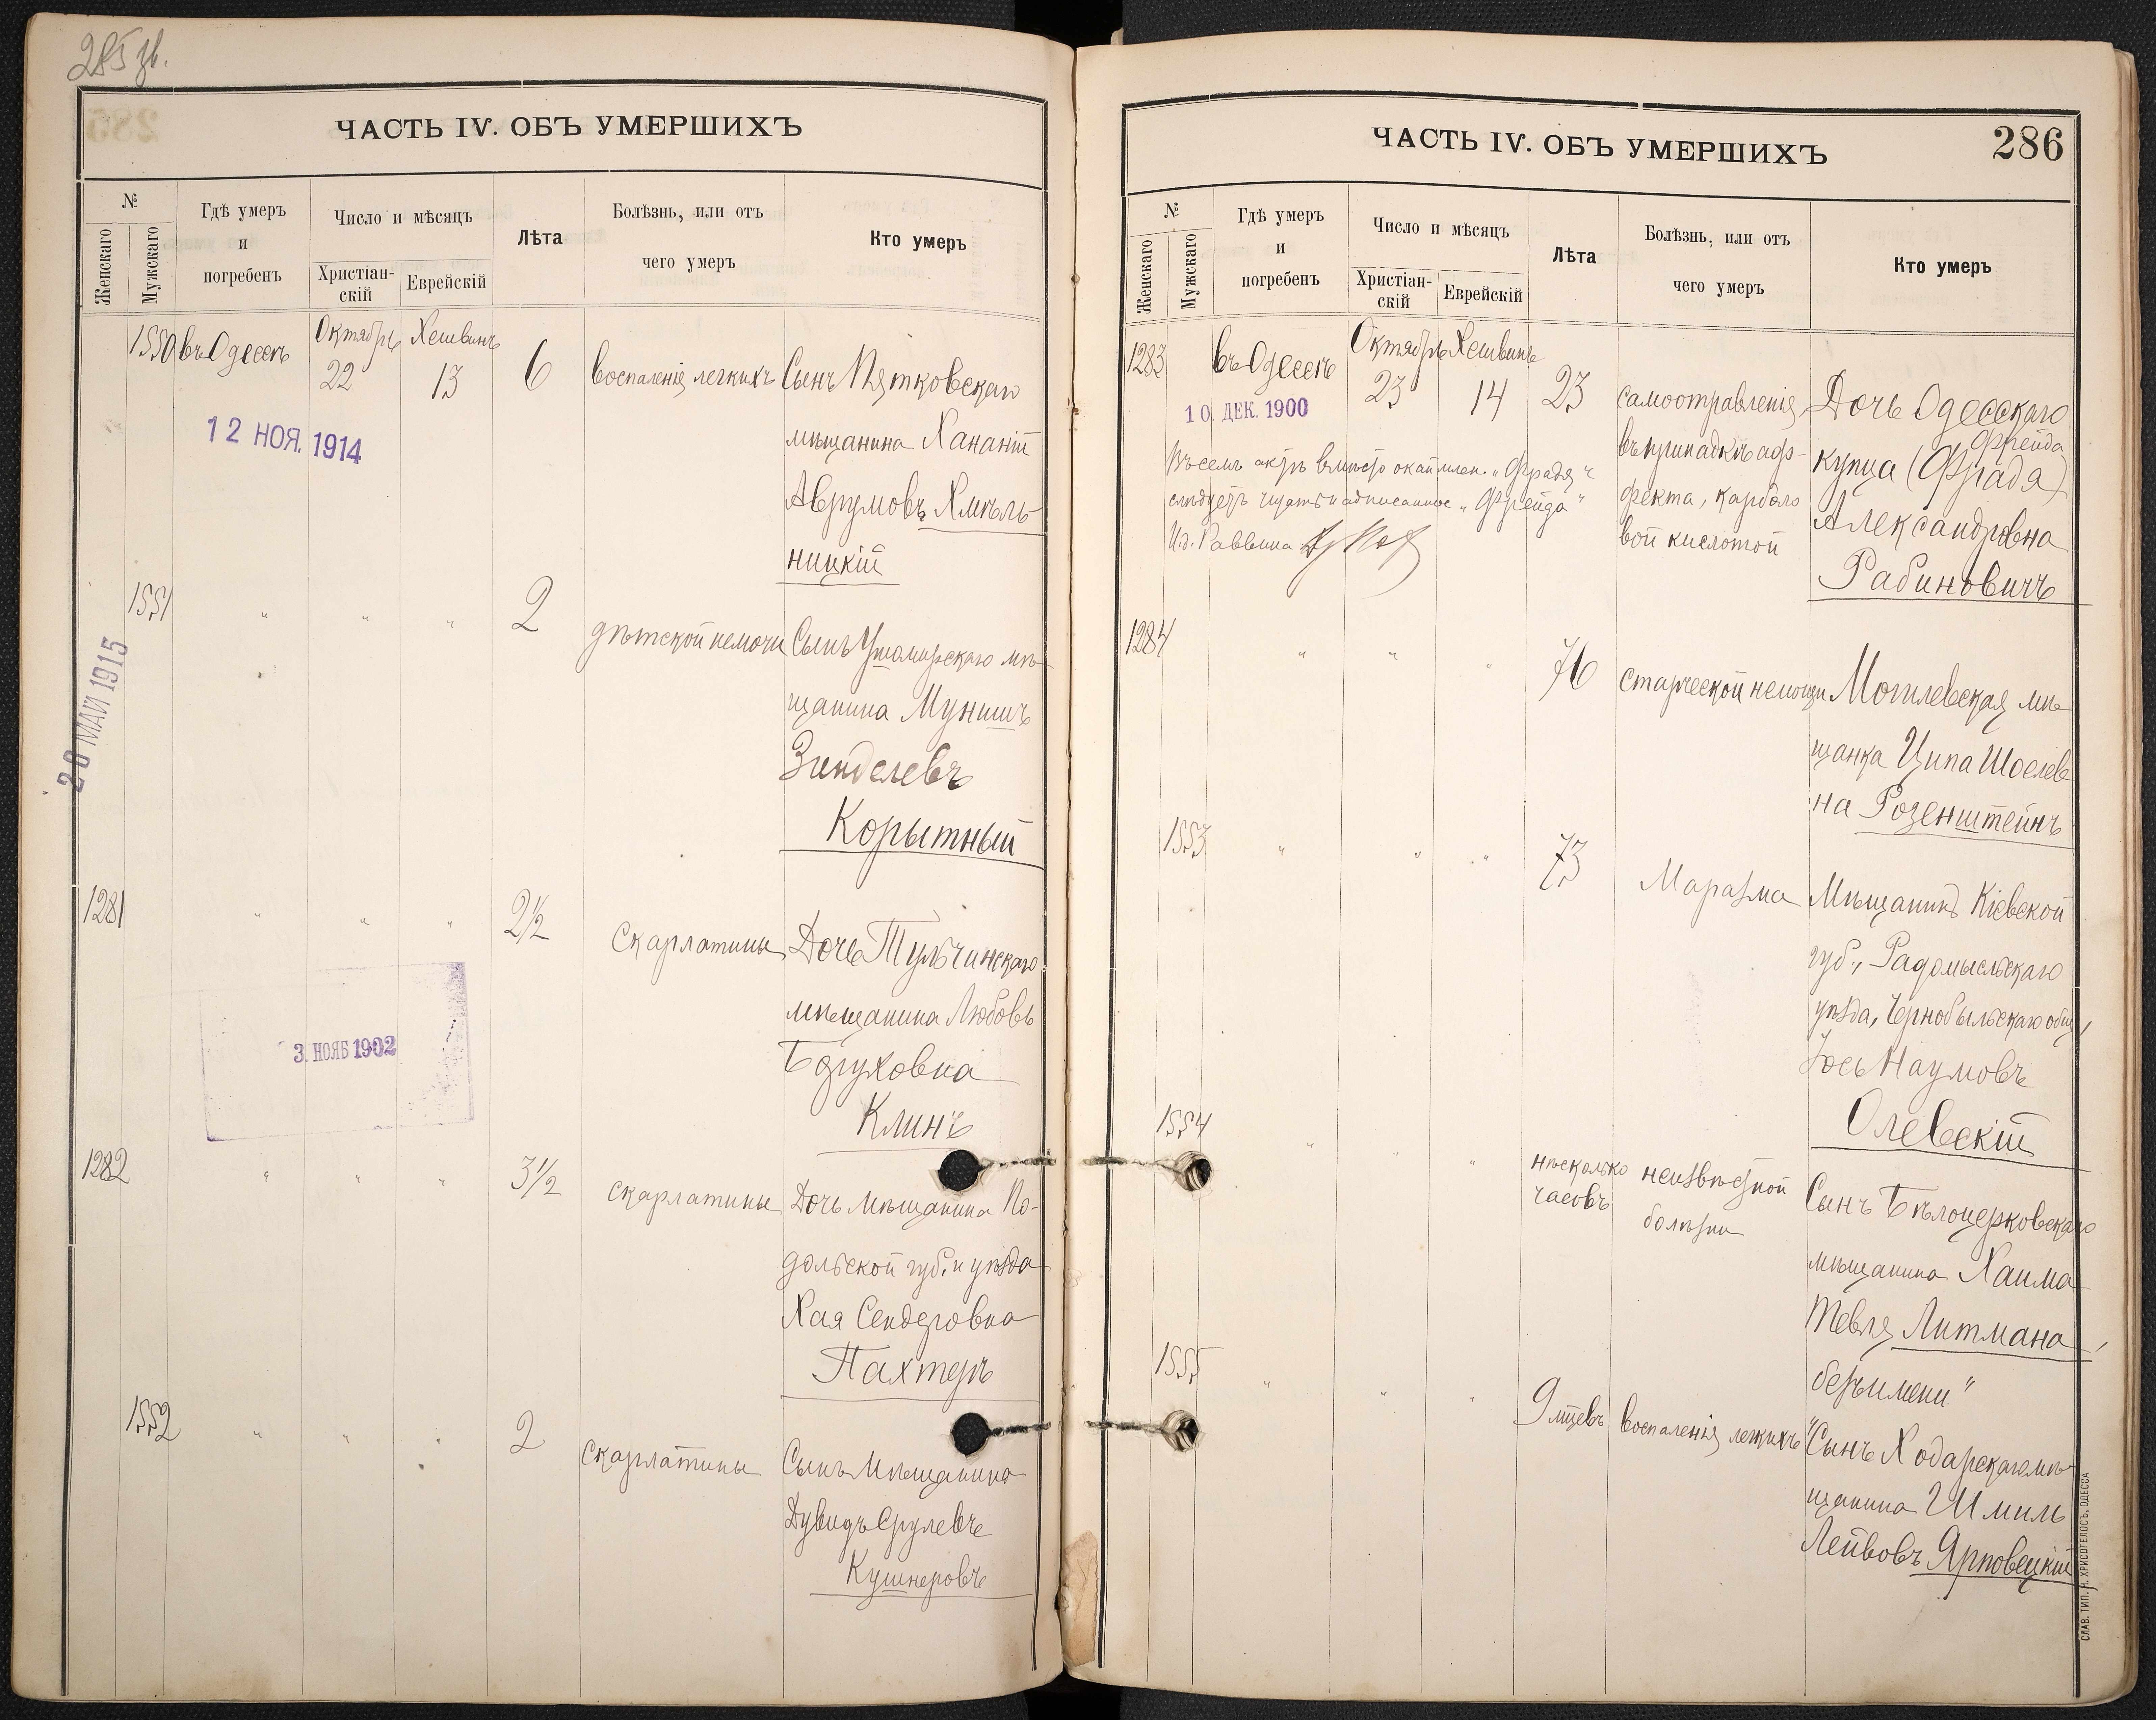 285 зв.
ЧАСТЬ IV. ОБЪ УМЕРШИХЪ
№
Женскаго
Мужскаго
Гдѣ умеръ
и
погребенъ
Число и мѣсяцъ
Христіан-
скій
Еврейскій
Лѣта
Болѣзнь, или отъ
чего умеръ
Кто умеръ
1550 въ Одессѣ Октябрь 22 Хешвинъ 13 6 воспаленія легкихъ Сынъ Пятковскаго
мѣщанина Хананій
Аврумовъ Хмѣль-
ницкій
12 НОЯ. 1914
1551 " " " 2 дѣтской немочи Сынъ Ушомирскаго мѣ-
щанина Мунишъ
Зинделевъ
Корытный
20 МАЙ 1915
1281 " " " 2½ скарлатины Дочь Тульчинскаго
мѣщанина Любовь
Боруховна
Клинъ
3. НОЯБ 1902
1282 " " " 3½ скарлатины Дочь мѣщанина По-
дольской губ. и уѣзда
Хая Сендеровна
Пахтеръ
1552 " " " 2 скарлатины Сынъ мѣщанина
Дувидъ Срулевъ
Кушнеровъ
ЧАСТЬ IV. ОБЪ УМЕРШИХЪ
286
№
Женскаго
Мужскаго
Гдѣ умеръ
и
погребенъ
Число и мѣсяцъ
Христіан-
скій
Еврейскій
Лѣта
Болѣзнь, или отъ
чего умеръ
Кто умеръ
1283 въ Одессѣ Октябрь 23 Хешвинъ 14 23 самоотравленія, Дочь Одесскаго
въ припадкѣ аф- Фрейда
купца (Фрадя)
фекта, карболо
Александровна
вой кислотой
Рабиновичъ
10. ДЕК. 1900
Въ семъ актѣ вмѣсто окаймлен. „Фрадя"
слѣдуетъ читать надписанное „Фрейда"
И.д. Раввина
1284 " " " 76 старческой немощи Могилевская мѣ
щанка Ципа Шоелев
на Розенштейнъ
1553 " " " 73 Маразма Мѣщанинъ Кіевской
губ., Радомысльскаго
уѣзда, Чернобыльскаго общ.,
Іось Наумовъ
Олевскій
1554 " " " нѣсколько часовъ неизвѣстной болѣзни Сынъ Бѣлоцерковскаго
мѣщанина Хаима
Тевля Литмана,
безъ имени"
1555 " " " 9 мцевъ воспаленія легкихъ Сынъ Ходарскаго мѣ-
щанина Шмиль
Лейбовъ Ярповецкій
СЛАВ. ТИП. Н. ХРИСОГЕЛОСЪ, ОДЕССА